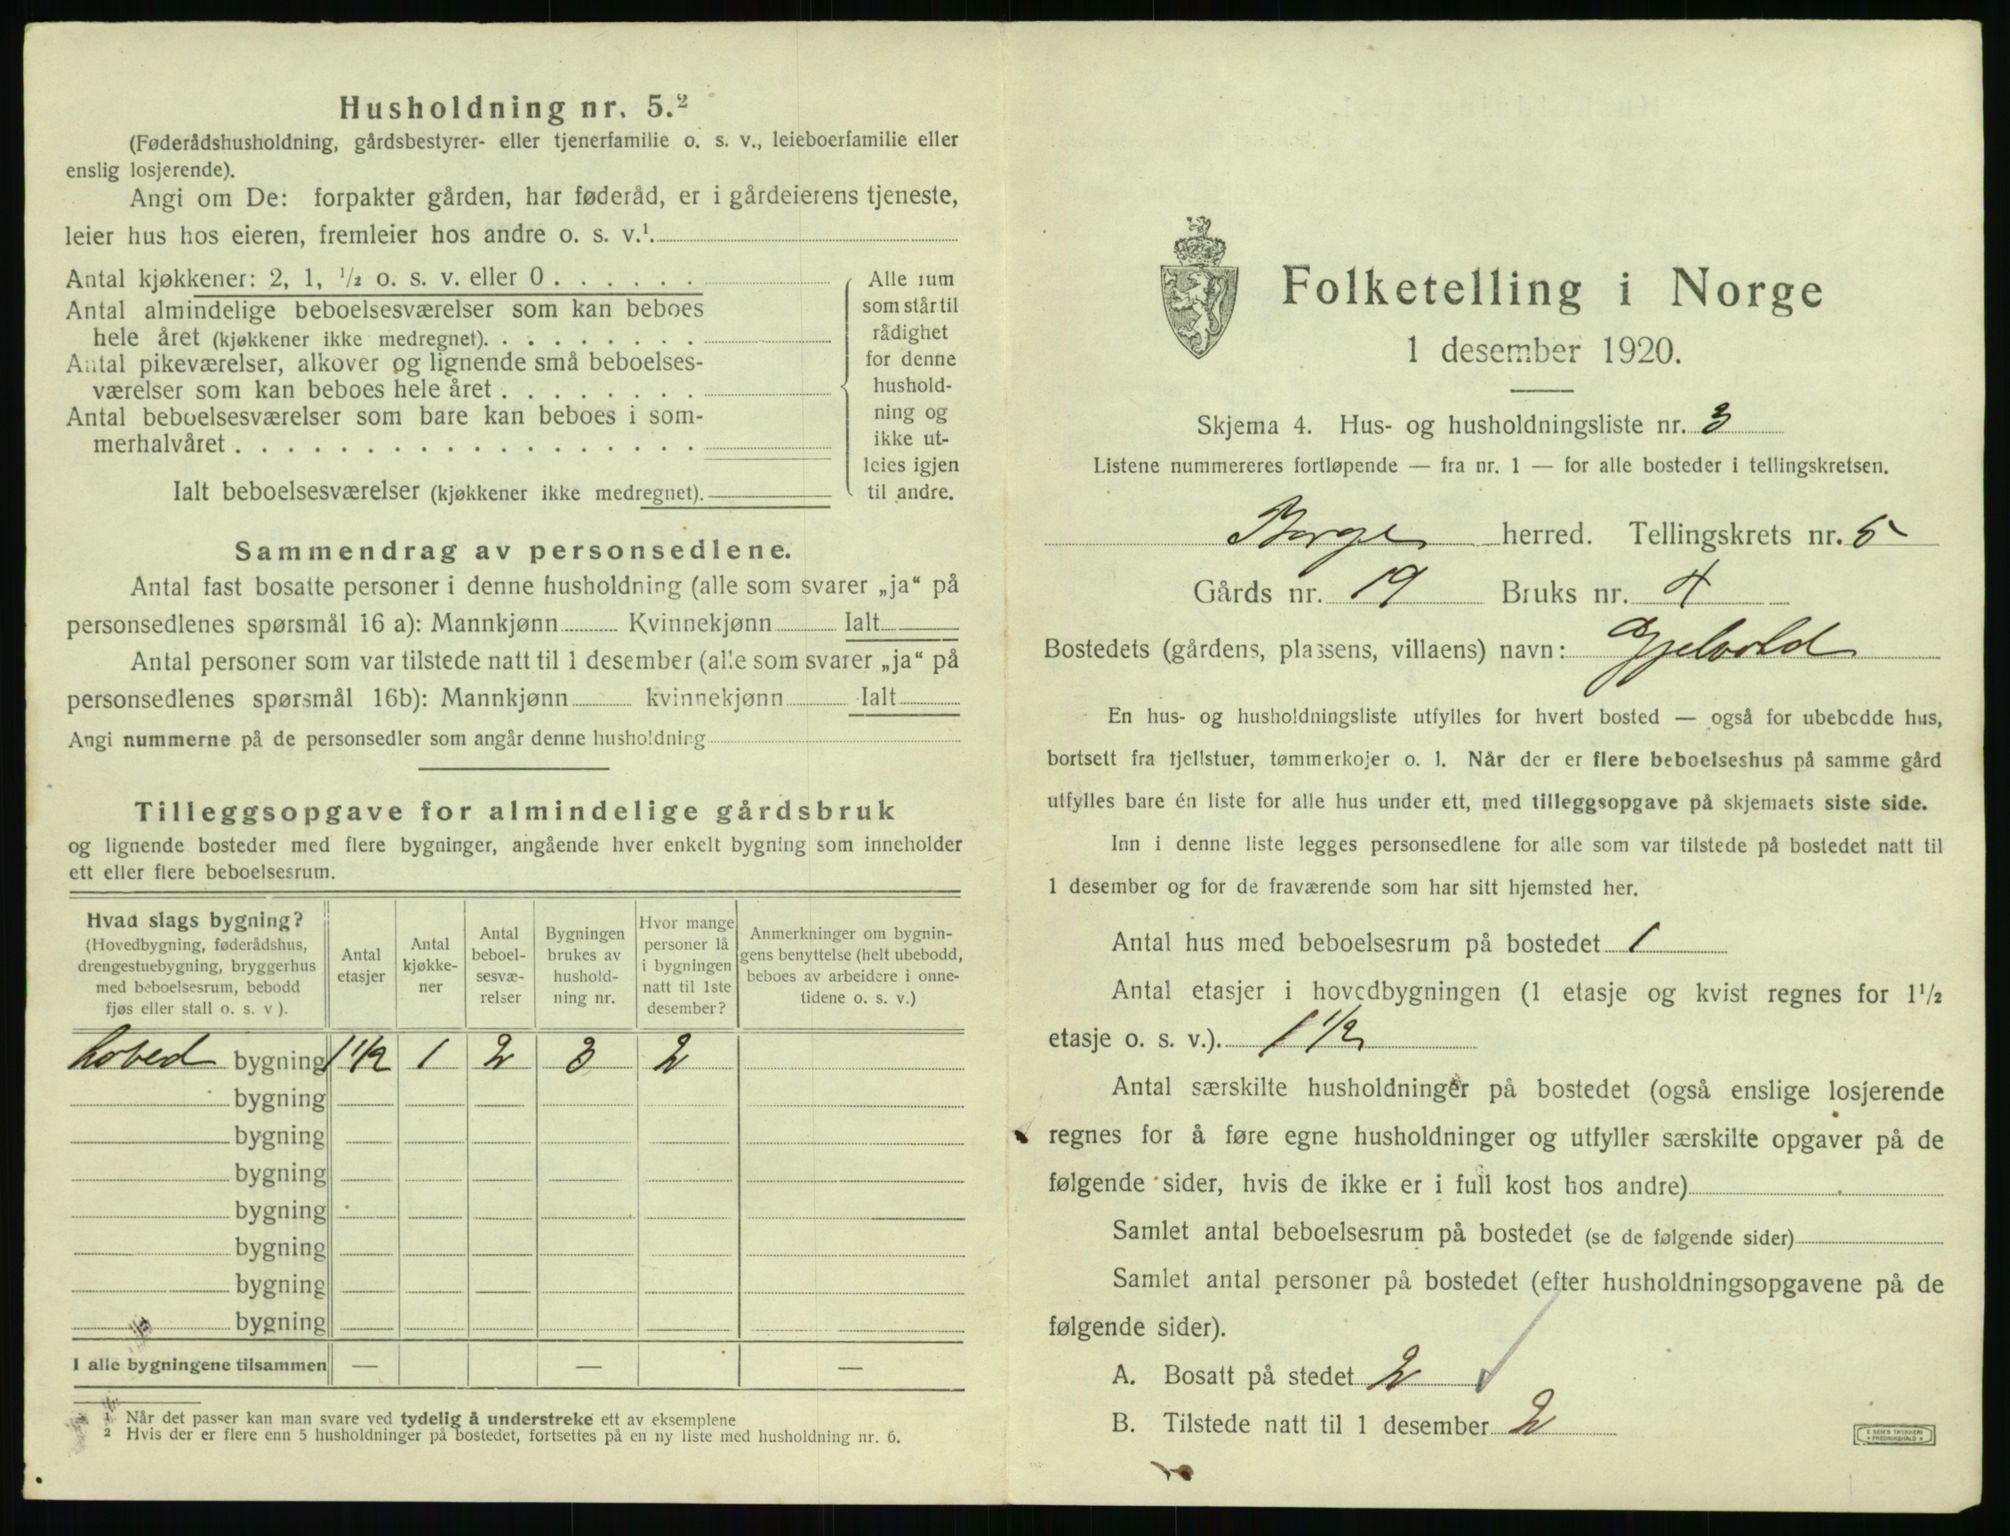 Husholdning nr. 5.²
(Føderådshusholdning, gårdsbestyrer- eller tjenerfamilie o. s. v., leieboerfamilie eller
enslig losjerende).
Angi om De: forpakter gården, har føderåd, er i gårdeierens tjeneste,
leier hus hos eieren, fremleier hos andre o. s. v.¹.
Antal kjøkkener: 2, 1, ½ o. s. v. eller 0 . . . . . .
Antal almindelige beboelsesværelser som kan beboes
hele året (kjøkkener ikke medregnet). . . . . . . . .
Antal pikeværelser, alkover og lignende små beboelses-
værelser som kan beboes hele året . . . . . . . .
Antal beboelsesværelser som bare kan beboes i som-
merhalvåret . . . . . . . . . . . . . . . . . .
Ialt beboelsesværelser (kjøkkener ikke medregnet).
Alle rum
som står til
rådighet
for denne
hushold-
ning og
ikke ut-
leies igjen
til andre.
Sammendrag av personsedlene.
Antal fast bosatte personer i denne husholdning (alle som svarer „ja“ på
personsedlenes spørsmål 16 a): Mannkjønn Kvinnekjønn Ialt
Antal personer som var tilstede natt til 1 desember (alle som svarer „ja“ på
personsedlenes spørsmål 16b): Mannkjønn kvinnekjønn Ialt
Angi nummerne på de personsedler som angår denne husholdning
Tilleggsopgave for almindelige gårdsbruk
og lignende bosteder med flere bygninger, angående hver enkelt bygning som inneholder
ett eller flere beboelsesrum.
Hvad slags bygning?
(Hovedbygning, føderådshus,
drengestuebygning, bryggerhus
med beboelsesrum, bebodd
fjøs eller stall o. s. v ).
Antal
etasjer
Antal
kjøkke-
ner
Antal
beboel-
sesvæ-
relser
Bygningen
brukes av
hushold-
ning nr.
Hvor mange
personer lå
i bygningen
natt til 1ste
desember?
Anmerkninger om bygnin-
gens benyttelse (helt ubebodd,
beboes av arbeidere i onne-
tidene o. s. v.)
hoved bygning 1 1/2 1 2 3 2
bygning
bygning
bygning
bygning
bygning
bygning
bygning
I alle bygningene tilsammen — — —
¹ Når det passer kan man svare ved tydelig å understreke ett av eksemplene
² Hvis der er flere enn 5 husholdninger på bostedet, fortsettes på en ny liste med husholdning nr. 6.
Folketelling i Norge
1 desember 1920.
Skjema 4. Hus- og husholdningsliste nr. 3
Listene nummereres fortløpende — fra nr. 1 — for alle bosteder i tellingskretsen.
Borge herred. Tellingskrets nr. 5
Gårds nr. 19 Bruks nr. 4
Bostedets (gårdens, plassens, villaens) navn: Gjelvold
En hus- og husholdningsliste utfylles for hvert bosted — også for ubebodde hus,
bortsett fra fjellstuer, tømmerkojer o. l. Når der er flere beboelseshus på samme gård
utfylles bare én liste for alle hus under ett, med tilleggsopgave på skjemaets siste side.
Inn i denne liste legges personsedlene for alle som var tilstede på bostedet natt til
1 desember og for de fraværende som har sitt hjemsted her.
Antal hus med beboelsesrum på bostedet 1
Antal etasjer i hovedbygningen (1 etasje og kvist regnes for 1½
etasje o. s. v.). 1 1/2
Antal særskilte husholdninger på bostedet (også enslige losjerende
regnes for å føre egne husholdninger og utfyller særskilte opgaver på de
følgende sider, hvis de ikke er i full kost hos andre)
Samlet antal beboelsesrum på bostedet (se de følgende sider)
Samlet antal personer på bostedet (efter husholdningsopgavene på de
følgende sider).
A. Bosatt på stedet 2
B. Tilstede natt til 1 desember 2